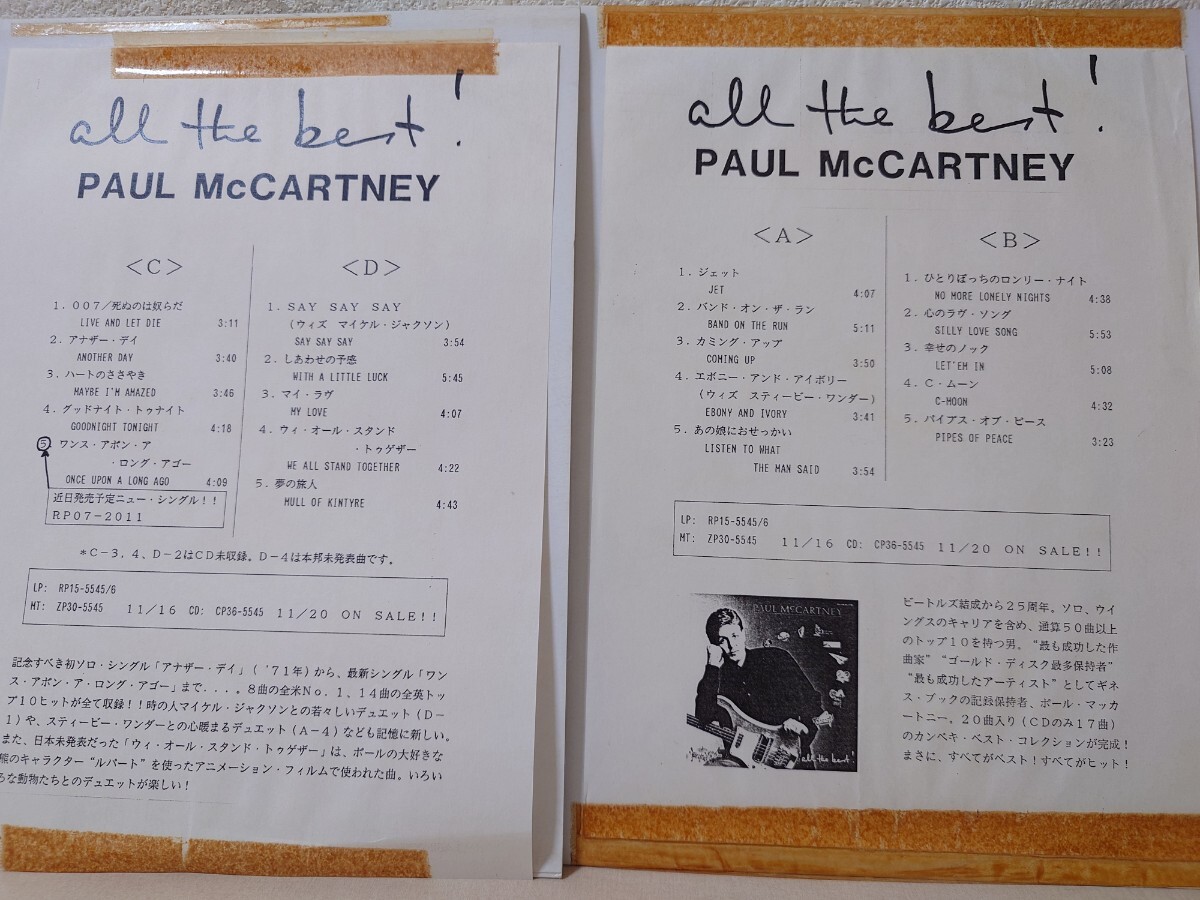 all the best!
PAUL McCARTNEY
<C>
1．００７／死ぬのは奴らだ
LIVE AND LET DIE 3:11
2．アナザー・デイ
ANOTHER DAY 3:40
3．ハートのささやき
MAYBE I'M AMAZED 3:46
4．グッドナイト・トゥナイト
GOODNIGHT TONIGHT 4:18
5 ワンス・アポン・ア
・ロング・アゴー
ONCE UPON A LONG AGO 4:09
近日発売予定ニュー・シングル！！
RP07-2011
<D>
1．SAY SAY SAY
（ウィズ マイケル・ジャクソン）
SAY SAY SAY 3:54
2．しあわせの予感
WITH A LITTLE LUCK 5:45
3．マイ・ラヴ
MY LOVE 4:07
4．ウィ・オール・スタンド
・トゥゲザー
WE ALL STAND TOGETHER 4:22
5．夢の旅人
MULL OF KINTYRE 4:43
＊C－3，4、D－2はCD未収録。D－4は本邦未発表曲です。
LP: RP15-5545/6
MT: ZP30-5545 11/16 CD: CP36-5545 11/20 ON SALE!!
記念すべき初ソロ・シングル「アナザー・デイ」（'71年）から、最新シングル「ワン
ス・アポン・ア・ロング・アゴー」まで．．．．８曲の全米No．１、１４曲の全英トッ
プ１０ヒットが全て収録！！時の人マイケル・ジャクソンとの若々しいデュエット（D－
1）や、スティービー・ワンダーとの心暖まるデュエット（A－4）なども記憶に新しい。
また、日本未発表だった「ウィ・オール・スタンド・トゥゲザー」は、ポールの大好きな
熊のキャラクター“ルパート”を使ったアニメーション・フィルムで使われた曲。いろい
ろな動物たちとのデュエットが楽しい！
all the best!
PAUL McCARTNEY
<A>
1．ジェット
JET 4:07
2．バンド・オン・ザ・ラン
BAND ON THE RUN 5:11
3．カミング・アップ
COMING UP 3:50
4．エボニー・アンド・アイボリー
（ウィズ スティービー・ワンダー）
EBONY AND IVORY 3:41
5．あの娘におせっかい
LISTEN TO WHAT
THE MAN SAID 3:54
<B>
1．ひとりぼっちのロンリー・ナイト
NO MORE LONELY NIGHTS 4:38
2．心のラヴ・ソング
SILLY LOVE SONG 5:53
3．幸せのノック
LET'EM IN 5:08
4．C・ムーン
C-MOON 4:32
5．パイプス・オブ・ピース
PIPES OF PEACE 3:23
LP: RP15-5545/6
MT: ZP30-5545 11/16 CD: CP36-5545 11/20 ON SALE!!
PAUL McCARTNEY
all the best!
ビートルズ結成から２５周年。ソロ、ウイ
ングスのキャリアを含め、通算５０曲以上
のトップ１０を持つ男。“最も成功した作
曲家”“ゴールド・ディスク最多保持者”
“最も成功したアーティスト”としてギネ
ス・ブックの記録保持者、ポール・マッカ
ートニー。２０曲入り（CDのみ１７曲）
のカンペキ・ベスト・コレクションが完成！
まさに、すべてがベスト！すべてがヒット！